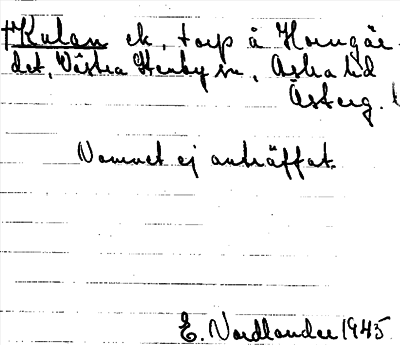 †Kulan ek, torp å Horngär-
det, Västra Stenby sn, Aska hd
Österg. l
Namnet ej anträffat.
E. Nordlander 1945